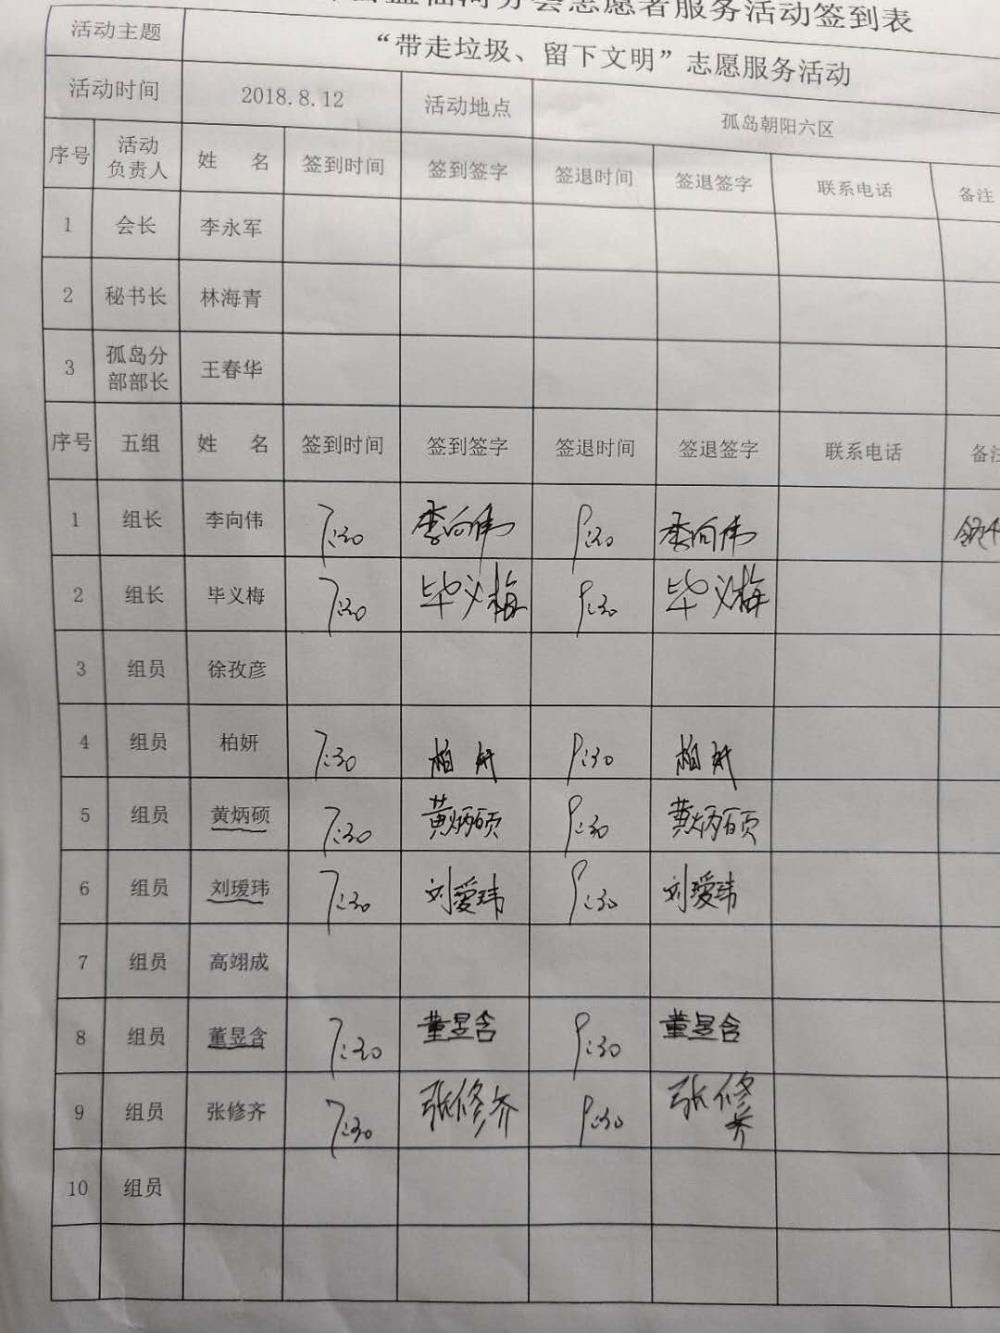 志愿者服务活动签到表
活动主题 “带走垃圾、留下文明”志愿服务活动
活动时间 2018.8.12 活动地点 孤岛朝阳六区
序号 活动负责人 姓 名 签到时间 签到签字 签退时间 签退签字 联系电话 备注
1 会长 李永军
2 秘书长 林海青
3 孤岛分部部长 王春华
序号 五组 姓 名 签到时间 签到签字 签退时间 签退签字 联系电话 备注
1 组长 李向伟 7:30 李向伟 9:30 李向伟
2 组长 毕义梅 7:30 毕义梅 9:30 毕义梅
3 组员 徐孜彦
4 组员 柏妍 7:30 柏妍 9:30 柏妍
5 组员 黄炳硕 7:30 黄炳硕 9:30 黄炳硕
6 组员 刘瑷玮 7:30 刘瑷玮 9:30 刘瑷玮
7 组员 高翊成
8 组员 董昱含 7:30 董昱含 9:30 董昱含
9 组员 张修齐 7:30 张修齐 9:30 张修齐
10 组员